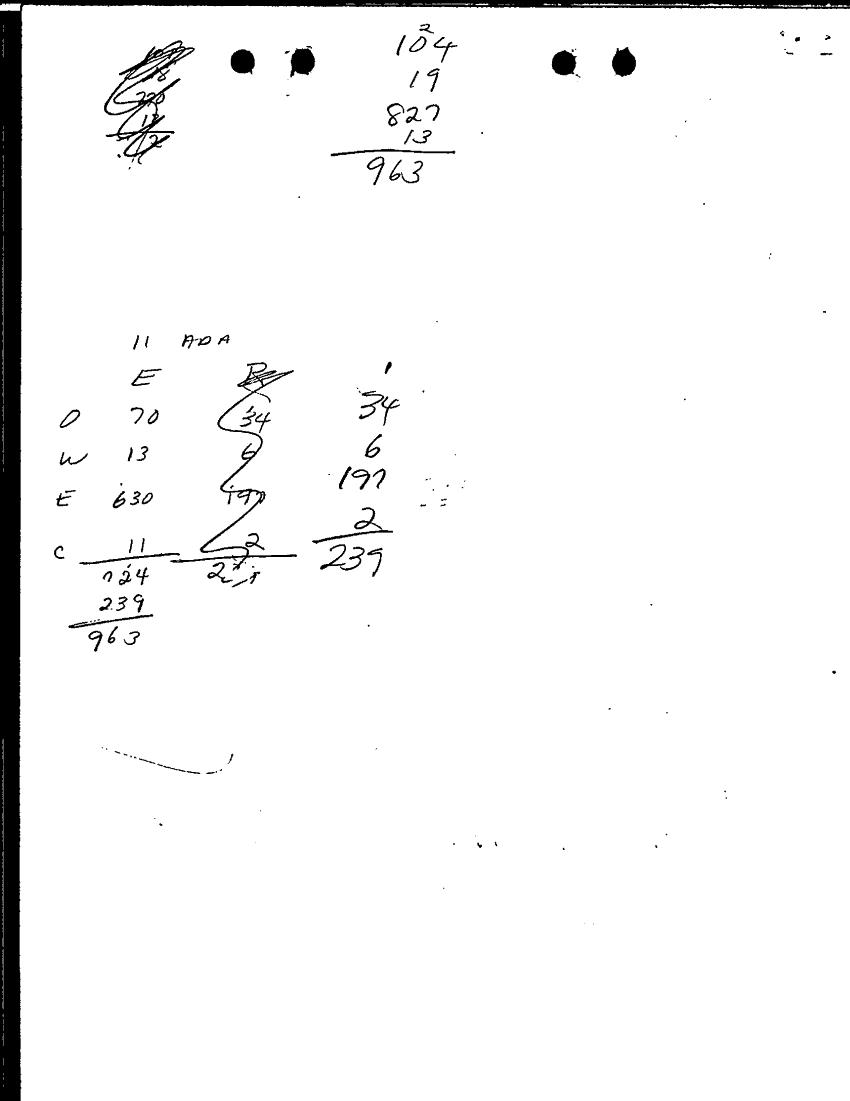 2
104
19
827
13
963
11 ADA
E R
O 70 34 34
W 13 6 6
E 630 197 197
C 11 2 2
724 239
239
963